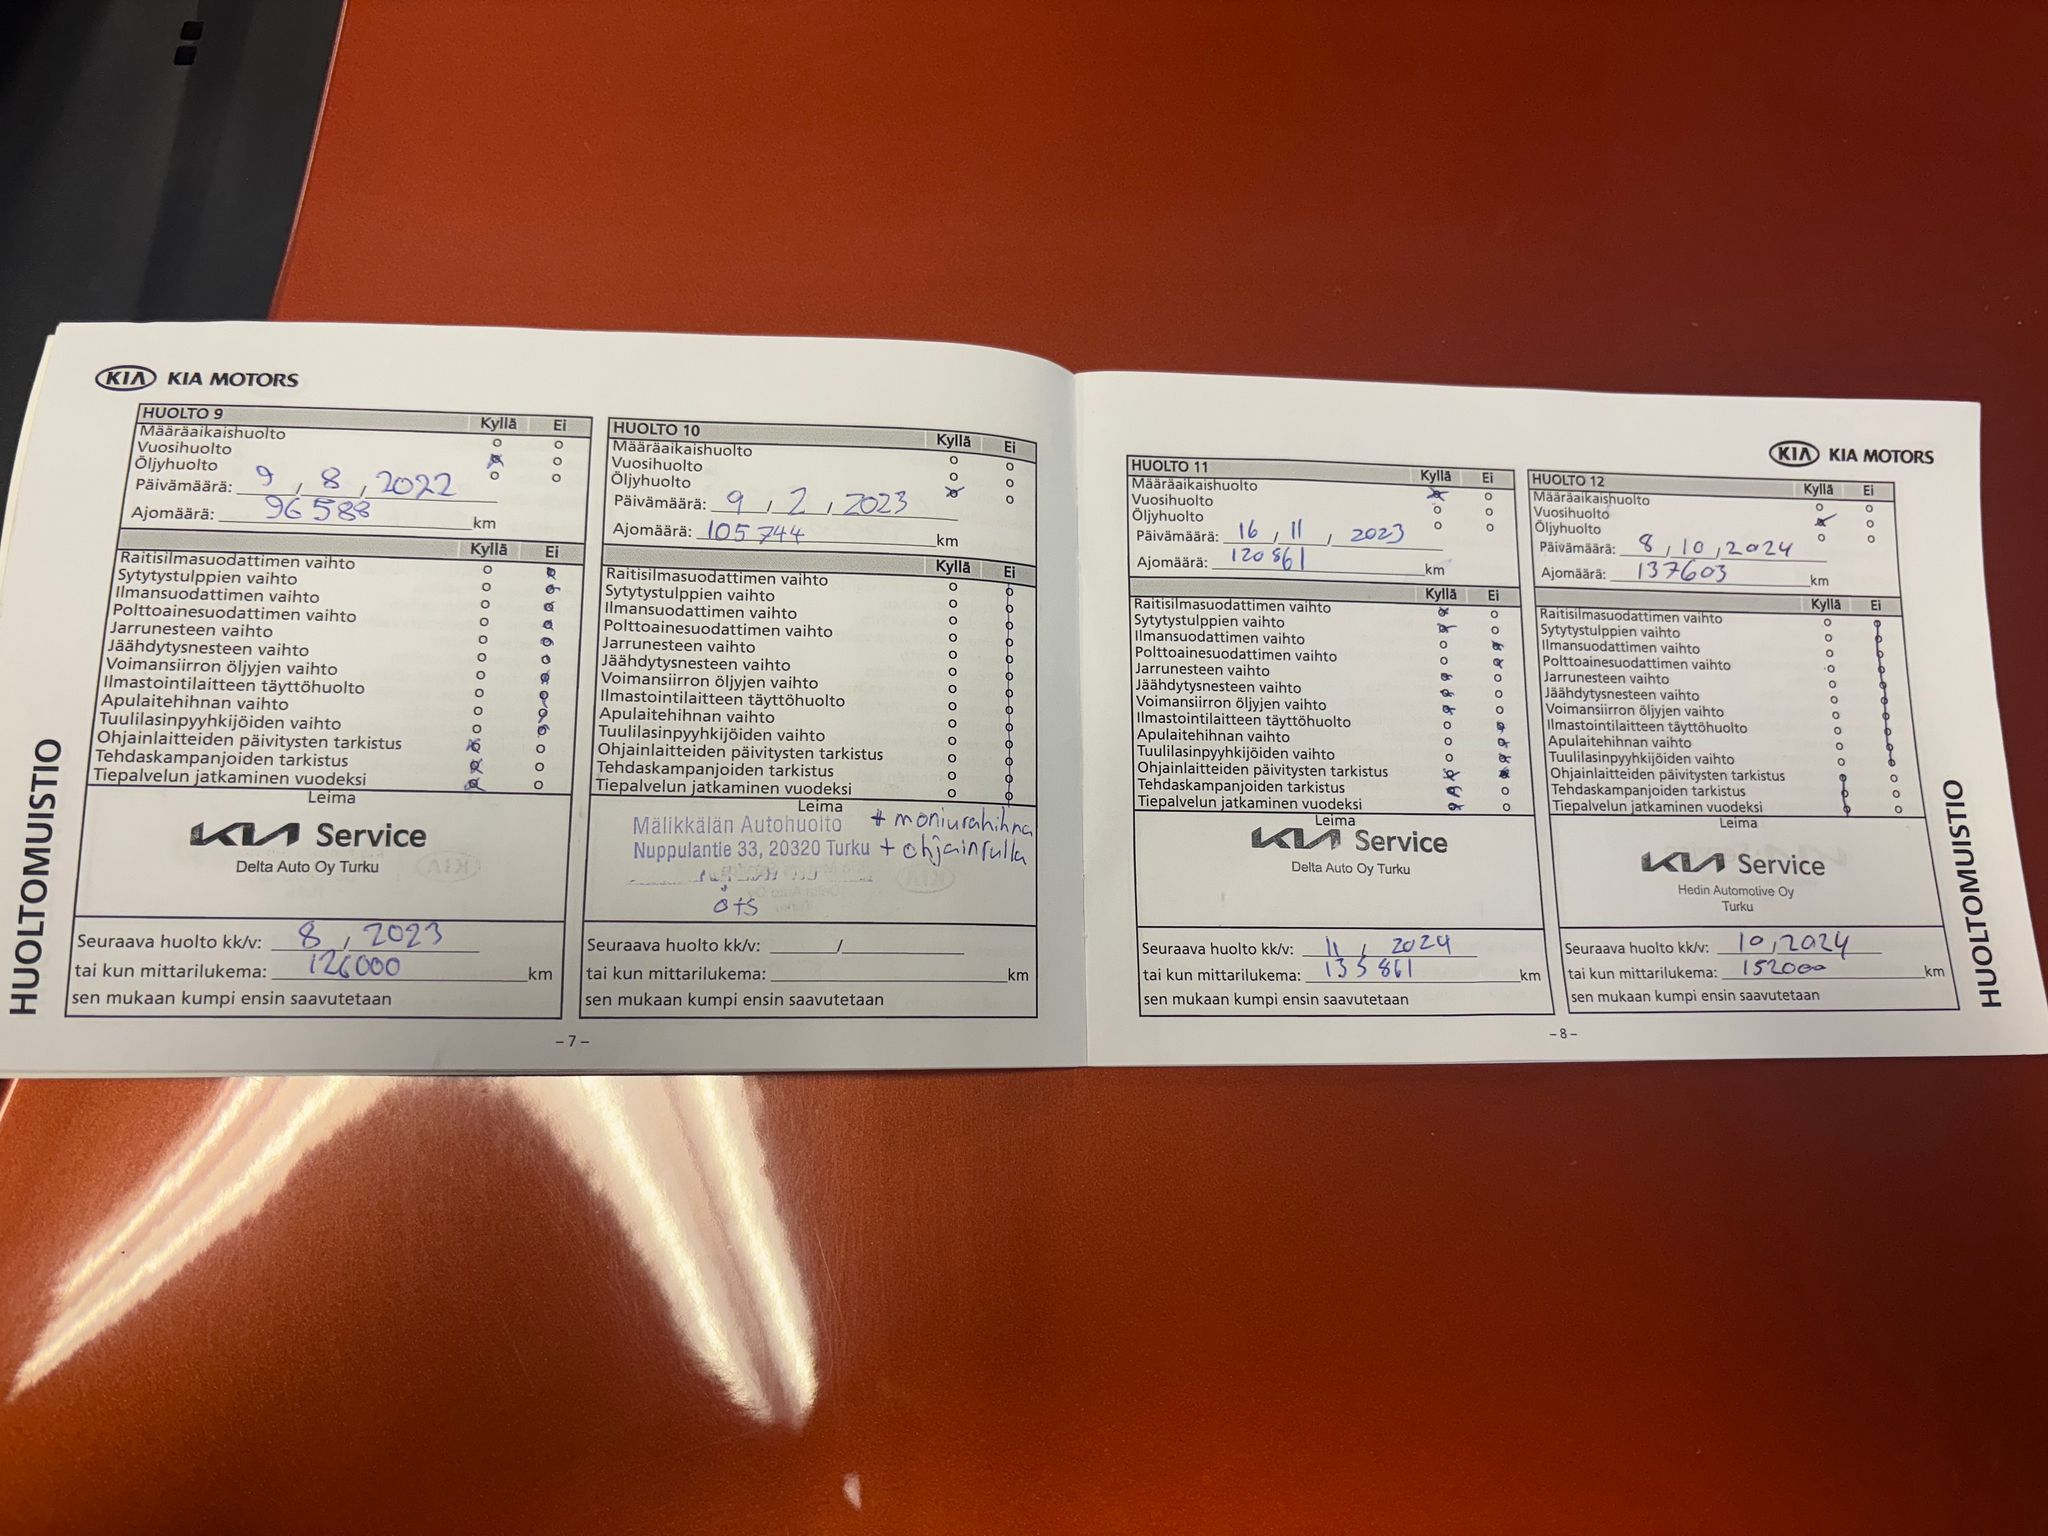 KIA KIA MOTORS
HUOLTO 9 Kyllä Ei
Määräaikaishuolto
Vuosihuolto
Öljyhuolto
Päivämäärä: 9 , 8 , 2022
Ajomäärä: 96588 km
Kyllä Ei
Raitisilmasuodattimen vaihto
Sytytystulppien vaihto
Ilmansuodattimen vaihto
Polttoainesuodattimen vaihto
Jarrunesteen vaihto
Jäähdytysnesteen vaihto
Voimansiirron öljyjen vaihto
Ilmastointilaitteen täyttöhuolto
Apulaitehihnan vaihto
Tuulilasinpyyhkijöiden vaihto
Ohjainlaitteiden päivitysten tarkistus
Tehdaskampanjoiden tarkistus
Tiepalvelun jatkaminen vuodeksi
Leima
KIA Service
Delta Auto Oy Turku
Seuraava huolto kk/v: 8 , 2023
tai kun mittarilukema: 126000 km
sen mukaan kumpi ensin saavutetaan
HUOLTO 10 Kyllä Ei
Määräaikaishuolto
Vuosihuolto
Öljyhuolto
Päivämäärä: 9 , 2 , 2023
Ajomäärä: 105744 km
Kyllä Ei
Raitisilmasuodattimen vaihto
Sytytystulppien vaihto
Ilmansuodattimen vaihto
Polttoainesuodattimen vaihto
Jarrunesteen vaihto
Jäähdytysnesteen vaihto
Voimansiirron öljyjen vaihto
Ilmastointilaitteen täyttöhuolto
Apulaitehihnan vaihto
Tuulilasinpyyhkijöiden vaihto
Ohjainlaitteiden päivitysten tarkistus
Tehdaskampanjoiden tarkistus
Tiepalvelun jatkaminen vuodeksi
Leima
Mälikkälän Autohuolto + moniurahihna
Nuppulantie 33, 20320 Turku + ohjainrulla
Seuraava huolto kk/v: /
tai kun mittarilukema: km
sen mukaan kumpi ensin saavutetaan
HUOLTOMUISTIO
– 7 –
KIA KIA MOTORS
HUOLTO 11 Kyllä Ei
Määräaikaishuolto
Vuosihuolto
Öljyhuolto
Päivämäärä: 16 , 11 , 2023
Ajomäärä: 120861 km
Kyllä Ei
Raitisilmasuodattimen vaihto
Sytytystulppien vaihto
Ilmansuodattimen vaihto
Polttoainesuodattimen vaihto
Jarrunesteen vaihto
Jäähdytysnesteen vaihto
Voimansiirron öljyjen vaihto
Ilmastointilaitteen täyttöhuolto
Apulaitehihnan vaihto
Tuulilasinpyyhkijöiden vaihto
Ohjainlaitteiden päivitysten tarkistus
Tehdaskampanjoiden tarkistus
Tiepalvelun jatkaminen vuodeksi
Leima
KIA Service
Delta Auto Oy Turku
Seuraava huolto kk/v: 11 , 2024
tai kun mittarilukema: 135861 km
sen mukaan kumpi ensin saavutetaan
HUOLTO 12 Kyllä Ei
Määräaikaishuolto
Vuosihuolto
Öljyhuolto
Päivämäärä: 8 , 10 , 2024
Ajomäärä: 137603 km
Kyllä Ei
Raitisilmasuodattimen vaihto
Sytytystulppien vaihto
Ilmansuodattimen vaihto
Polttoainesuodattimen vaihto
Jarrunesteen vaihto
Jäähdytysnesteen vaihto
Voimansiirron öljyjen vaihto
Ilmastointilaitteen täyttöhuolto
Apulaitehihnan vaihto
Tuulilasinpyyhkijöiden vaihto
Ohjainlaitteiden päivitysten tarkistus
Tehdaskampanjoiden tarkistus
Tiepalvelun jatkaminen vuodeksi
Leima
KIA Service
Hedin Automotive Oy
Turku
Seuraava huolto kk/v: 10 , 2024
tai kun mittarilukema: 152000 km
sen mukaan kumpi ensin saavutetaan
HUOLTOMUISTIO
– 8 –